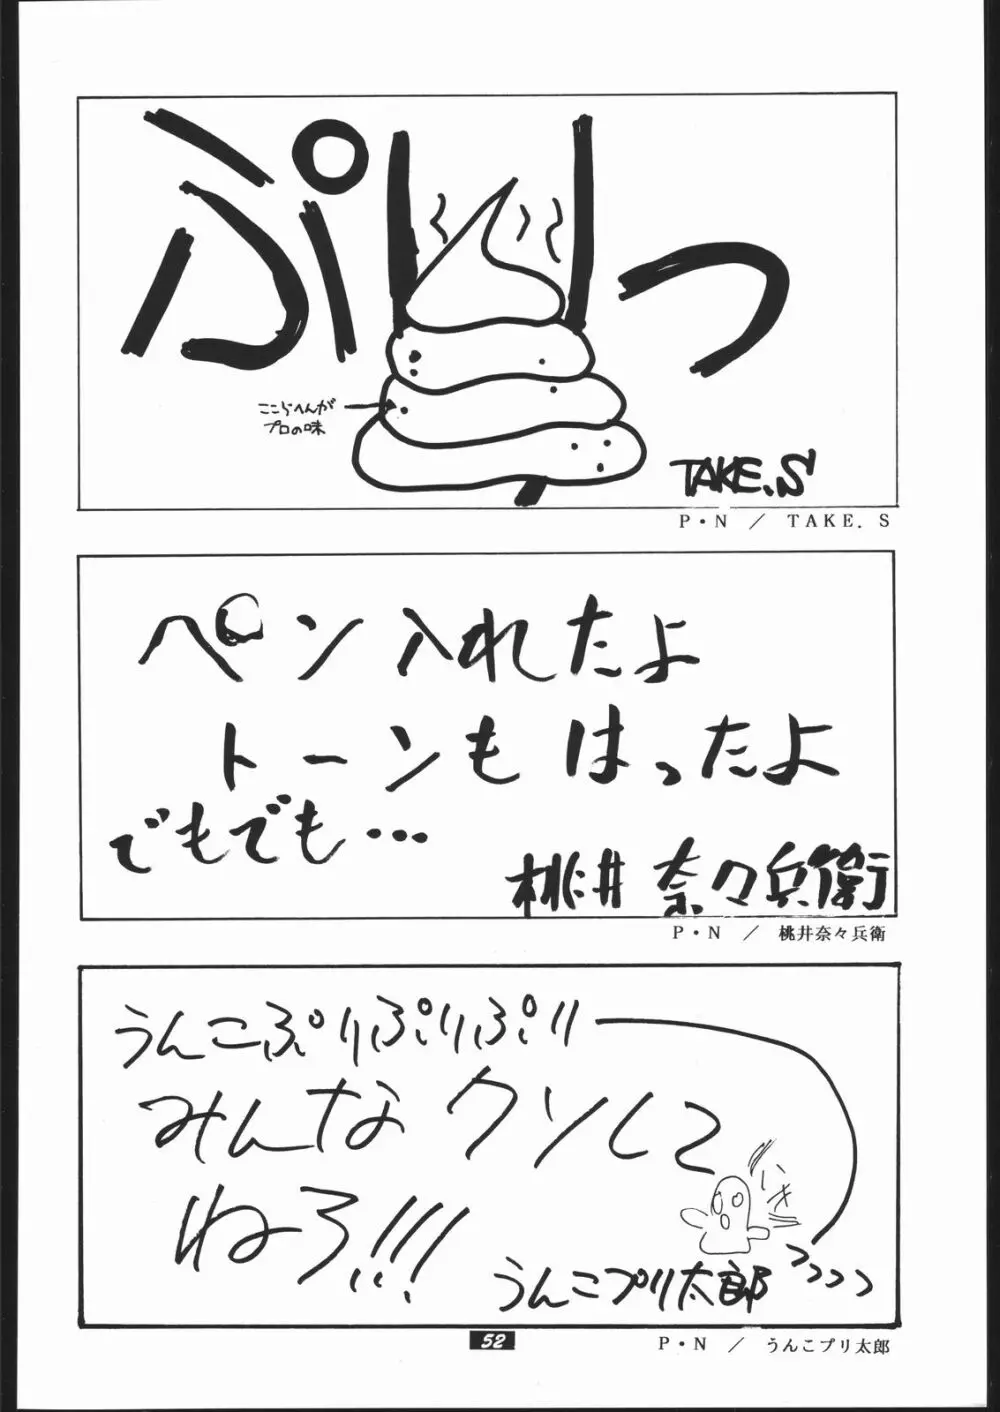 ぷりっ
ここらへんが
プロの味
TAKE.S
P・N ／ TAKE. S
ペン入れたよ
トーンもはったよ
でもでも…
桃井 奈々兵衛
P・N ／ 桃井奈々兵衛
うんこぷりぷりぷり
みんなクソして
ねろ!!!
いき
うんこプリ太郎
P・N ／ うんこプリ太郎
52